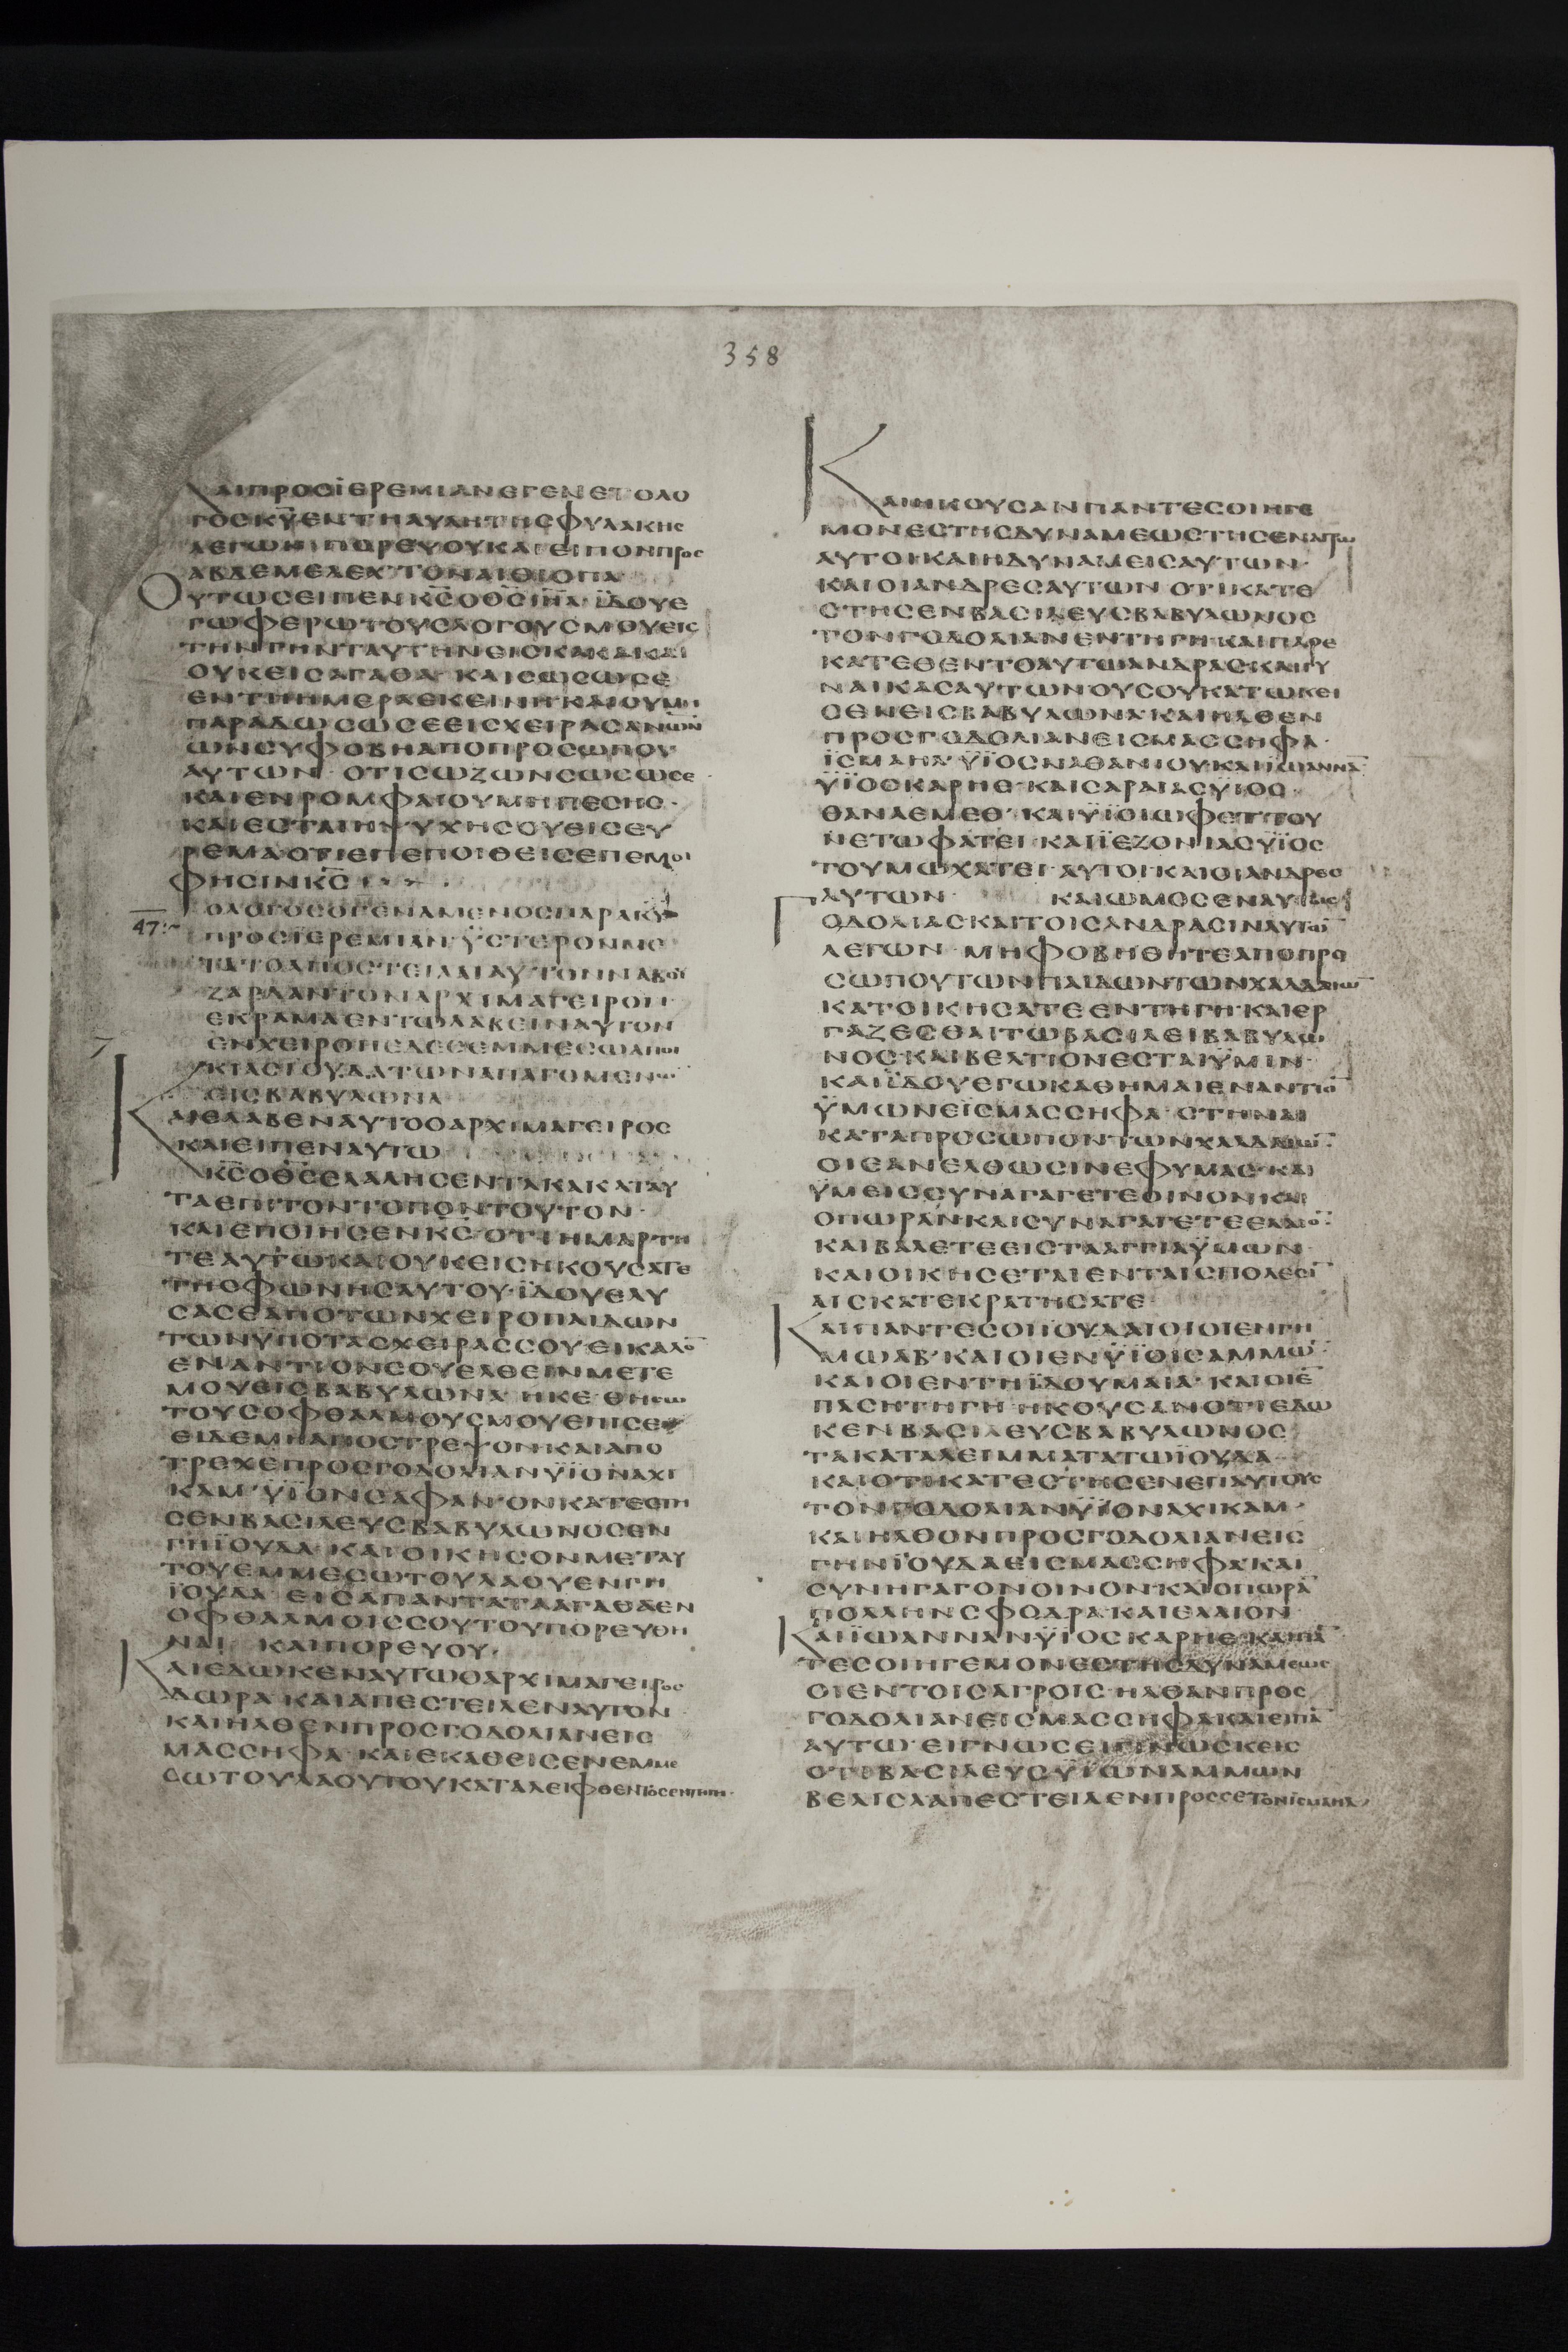 358
ΚΑΙΠΡΟΣΪΕΡΕΜΙΑΝΕΓΕΝΕΤΟΛΟ
ΓΟΣΚΥ̅ΕΝΤΗΑΥΛΗΤΗΣΦΥΛΑΚΗΣ
ΛΕΓΩΝ ΠΟΡΕΥΟΥΚΑΙΕΙΠΟΝΠΡΟΣ
ΑΒΔΕΜΕΛΕΧ ΤΟΝΑΙΘΙΟΠΑ
ΟΥΤΩΣΕΙΠΕΝΚΣ̅ΟΘΣ̅ΙΗΛ̅ ΪΔΟΥΕ
ΓΩΦΕΡΩΤΟΥΣΛΟΓΟΥΣΜΟΥΕΙΣ
ΤΗΝΓΗΝΤΑΥΤΗΝΕΙΣΚΑΚΑΚΑΙ
ΟΥΚΕΙΣΑΓΑΘΑ ΚΑΙΣΩΣΩΣΕ
ΕΝΤΗΗΜΕΡΑΕΚΕΙΝΗ ΚΑΙΟΥΜΗ
ΠΑΡΑΔΩΣΩΣΕΕΙΣΧΕΙΡΑΣΑΝΩΝ
ΩΝΣΥΦΟΒΗΑΠΟΠΡΟΣΩΠΟΥ
ΑΥΤΩΝ ΟΤΙΣΩΖΩΝΣΩΣΩΣΕ
ΚΑΙΕΝΡΟΜΦΑΙΟΥΜΗΠΕΣΗΣ
ΚΑΙΕΣΤΑΙΗΨΥΧΗΣΟΥΘΙΣΕΥ
ΡΕΜΑΟΤΙΕΠΕΠΟΙΘΕΙΣΕΠΕΜΟΙ
ΦΗΣΙΝΚΣ̅
ΟΛΟΓΟΣΟΓΕΝΑΜΕΝΟΣΠΑΡΑΚΥ̅
47
ΠΡΟΣΪΕΡΕΜΙΑΝ ΫΣΤΕΡΟΝΜΕ
ΤΑΤΟΑΠΟΣΤΕΙΛΑΙΑΥΤΟΝΝΑΒΟΥ
ΖΑΡΔΑΝΤΟΝΑΡΧΙΜΑΓΕΙΡΟΝ
ΕΚΡΑΜΑΕΝΤΩΛΑΒΕΙΝΑΥΤΟΝ
ΕΝΧΕΙΡΟΠΕΔΕΣΕΜΜΕΣΩΑΠΟΙ
ΚΙΑΣΪΟΥΔΑΤΩΝΑΠΑΓΟΜΕΝΩ̅
ΕΙΣΒΑΒΥΛΩΝΑ
ΚΑΙΕΛΑΒΕΝΑΥΤΟΟΑΡΧΙΜΑΓΕΙΡΟΣ
ΚΑΙΕΙΠΕΝΑΥΤΩ
ΚΣ̅ΟΘΣ̅ΕΛΑΛΗΣΕΝΤΑΚΑΚΑΤΑΥ
ΤΑΕΠΙΤΟΝΤΟΠΟΝΤΟΥΤΟΝ
ΚΑΙΕΠΟΙΗΣΕΝΚΣ̅ ΟΤΙΗΜΑΡΤΗ
ΤΕΑΥΤΩΚΑΙΟΥΚΕΙΣΗΚΟΥΣΑΤΕ
ΤΗΣΦΩΝΗΣΑΥΤΟΥ ΪΔΟΥΕΛΥ
ΣΑΣΕΑΠΟΤΩΝΧΕΙΡΟΠΑΙΔΩΝ
ΤΩΝΫΠΟΤΑΣΧΕΙΡΑΣΣΟΥΕΙΚΑΛΟ̅
ΕΝΑΝΤΙΟΝΣΟΥΕΛΘΕΙΝΜΕΤΕ
ΜΟΥΕΙΣΒΑΒΥΛΩΝΑ ΗΚΕ ΘΗΣΩ
ΤΟΥΣΟΦΘΑΛΜΟΥΣΜΟΥΕΠΙΣΕ
ΕΙΔΕΜΗΑΠΟΣΤΡΕΨΟΝΚΑΙΑΠΟ
ΤΡΕΧΕΠΡΟΣΓΟΔΟΛΙΑΝΫΪΟΝΑΧΙ
ΚΑΜ ΫΪΟΝΣΑΦΑΝ ΟΝΚΑΤΕΣΤΗ
ΣΕΝΒΑΣΙΛΕΥΣΒΑΒΥΛΩΝΟΣΕΝ
ΓΗΪΟΥΔΑ ΚΑΙΟΙΚΗΣΟΝΜΕΤΑΥ
ΤΟΥΕΜΜΕΣΩΤΟΥΛΑΟΥΕΝΓΗ
ΪΟΥΔΑ ΕΙΣΑΠΑΝΤΑΤΑΑΓΑΘΑΕΝ
ΟΦΘΑΛΜΟΙΣΣΟΥΤΟΥΠΟΡΕΥΘΗ
ΝΑΙ ΚΑΙΠΟΡΕΥΟΥ
ΚΑΙΕΔΩΚΕΝΑΥΤΩΟΑΡΧΙΜΑΓΕΙΡΟΣ
ΔΩΡΑ ΚΑΙΑΠΕΣΤΕΙΛΕΝΑΥΤΟΝ
ΚΑΙΗΛΘΕΝΠΡΟΣΓΟΔΟΛΙΑΝΕΙΣ
ΜΑΣΣΗΦΑ ΚΑΙΕΚΑΘΕΙΣΕΝΕΜΜΕ
ΣΩΤΟΥΛΑΟΥΤΟΥΚΑΤΑΛΕΙΦΘΕΝΤΟΣΕΝΤΗΓΗ
ΚΑΙΗΚΟΥΣΑΝΠΑΝΤΕΣΟΙΗΓΕ
ΜΟΝΕΣΤΗΣΔΥΝΑΜΕΩΣΤΗΣΕΝΑΓΡΩ
ΑΥΤΟΙΚΑΙΗΔΥΝΑΜΕΙΣΑΥΤΩΝ
ΚΑΙΟΙΑΝΔΡΕΣΑΥΤΩΝ ΟΤΙΚΑΤΕ
ΣΤΗΣΕΝΒΑΣΙΛΕΥΣΒΑΒΥΛΩΝΟΣ
ΤΟΝΓΟΔΟΛΙΑΝΕΝΤΗΓΗ ΚΑΙΠΑΡΕ
ΚΑΤΕΘΕΝΤΟΑΥΤΩΑΝΔΡΑΣΚΑΙΓΥ
ΝΑΙΚΑΣΑΥΤΩΝ ΟΥΣΟΥΚΑΤΩΚΕΙ
ΣΕΝΕΙΣΒΑΒΥΛΩΝΑ ΚΑΙΗΛΘΕΝ
ΠΡΟΣΓΟΔΟΛΙΑΝΕΙΣΜΑΣΣΗΦΑ
ΪΣΜΑΗΛ ΫΪΟΣΝΑΘΑΝΙΟΥΚΑΙΪΩΑΝΝΑ
ΫΪΟΣΚΑΡΗΕ ΚΑΙΣΑΡΑΙΑΣΫΙΟΣ
ΘΑΝΑΕΜΕΘ ΚΑΙΫΪΟΙΩΦΕΤΤΟΥ
ΝΕΤΩΦΑΤΕΙ ΚΑΙΪΕΖΟΝΙΑΣΫΪΟΣ
ΤΟΥΜΩΧΑΤΕΙ ΑΥΤΟΙΚΑΙΟΙΑΝΔΡΕΣ
ΑΥΤΩΝ ΚΑΙΩΜΟΣΕΝΑΥΤΟΙΣ
ΓΟΔΟΛΙΑΣΚΑΙΤΟΙΣΑΝΔΡΑΣΙΝΑΥΤΩ̅
ΛΕΓΩΝ ΜΗΦΟΒΗΘΗΤΕΑΠΟΠΡΟ
ΣΩΠΟΥΤΩΝΠΑΙΔΩΝΤΩΝΧΑΛΔΑΙΩ̅
ΚΑΤΟΙΚΗΣΑΤΕΕΝΤΗΓΗ ΚΑΙΕΡ
ΓΑΖΕΣΘΑΙΤΩΒΑΣΙΛΕΙΒΑΒΥΛΩ
ΝΟΣ ΚΑΙΒΕΛΤΙΟΝΕΣΤΑΙΫΜΙΝ
ΚΑΙΪΔΟΥΕΓΩΚΑΘΗΜΑΙΕΝΑΝΤΙΟ̅
ΫΜΩΝΕΙΣΜΑΣΣΗΦΑ ΣΤΗΝΑΙ
ΚΑΤΑΠΡΟΣΩΠΟΝΤΩΝΧΑΛΔΑΙΩ̅
ΟΙΕΑΝΕΛΘΩΣΙΝΕΦΥΜΑΣ ΚΑΙ
ΫΜΕΙΣΣΥΝΑΓΑΓΕΤΕΟΙΝΟΝΚΑΙ
ΟΠΩΡΑΝ ΚΑΙΣΥΝΑΓΑΓΕΤΕΕΛΑΙΟ̅
ΚΑΙΒΑΛΕΤΕΕΙΣΤΑΑΓΓΙΑΫΜΩΝ
ΚΑΙΟΙΚΗΣΕΤΑΙΕΝΤΑΙΣΠΟΛΕΣΙ̅
ΑΙΣΚΑΤΕΚΡΑΤΗΣΑΤΕ
ΚΑΙΠΑΝΤΕΣΟΙΪΟΥΔΑΙΟΙΟΙΕΝΓΗ
ΜΩΑΒ ΚΑΙΟΙΕΝΫΪΟΙΣΑΜΜΩ̅
ΚΑΙΟΙΕΝΤΗΪΔΟΥΜΑΙΑ ΚΑΙΟΙΕ̅
ΠΑΣΗΤΗΓΗ ΗΚΟΥΣΑΝΟΤΙΕΔΩ
ΚΕΝΒΑΣΙΛΕΥΣΒΑΒΥΛΩΝΟΣ
ΤΑΚΑΤΑΛΕΙΜΜΑΤΑΤΩΪΟΥΔΑ
ΚΑΙΟΤΙΚΑΤΕΣΤΗΣΕΝΕΠΑΥΤΟΥΣ
ΤΟΝΓΟΔΟΛΙΑΝΫΪΟΝΑΧΙΚΑΜ
ΚΑΙΗΛΘΟΝΠΡΟΣΓΟΔΟΛΙΑΝΕΙΣ
ΓΗΝΪΟΥΔΑΕΙΣΜΑΣΣΗΦΑ ΚΑΙ
ΣΥΝΗΓΑΓΟΝΟΙΝΟΝ ΚΑΙΟΠΩΡΑ̅
ΠΟΛΛΗΝΣΦΟΔΡΑ ΚΑΙΕΛΑΙΟΝ
ΚΑΙΪΩΑΝΝΑΝΫΙΟΣΚΑΡΗΕ ΚΑΙΠΑ̅
ΤΕΣΟΙΗΓΕΜΟΝΕΣΤΗΣΔΥΝΑΜΕΩΣ
ΟΙΕΝΤΟΙΣΑΓΡΟΙΣ ΗΛΘΑΝΠΡΟΣ
ΓΟΔΟΛΙΑΝΕΙΣΜΑΣΣΗΦΑ ΚΑΙΕΙΠΑ̅
ΑΥΤΩ ΕΙΓΝΩΣΕΙΓΙΝΩΣΚΕΙΣ
ΟΤΙΒΑΣΙΛΕΥΣΫΪΩΝΑΜΜΩΝ
ΒΕΛΙΣΑΑΠΕΣΤΕΙΛΕΝΠΡΟΣΣΕΤΟΝΙΣΜΑΗΛ